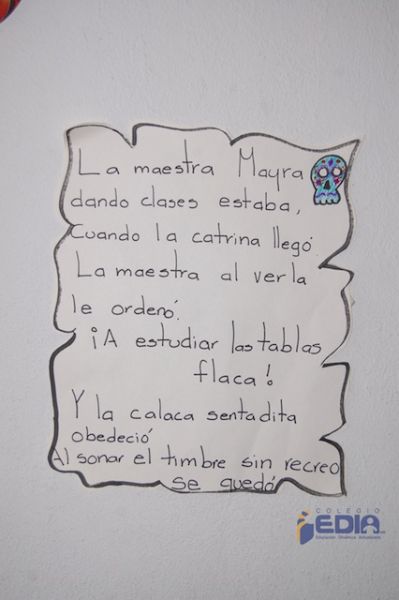 La maestra Mayra
dando clases estaba,
Cuando la catrina llegó.
La maestra al verla
le ordenó.
¡A estudiar las tablas
flaca!
Y la calaca sentadita
obedeció
Al sonar el timbre sin recreo
se quedó
COLEGIO
EDIA